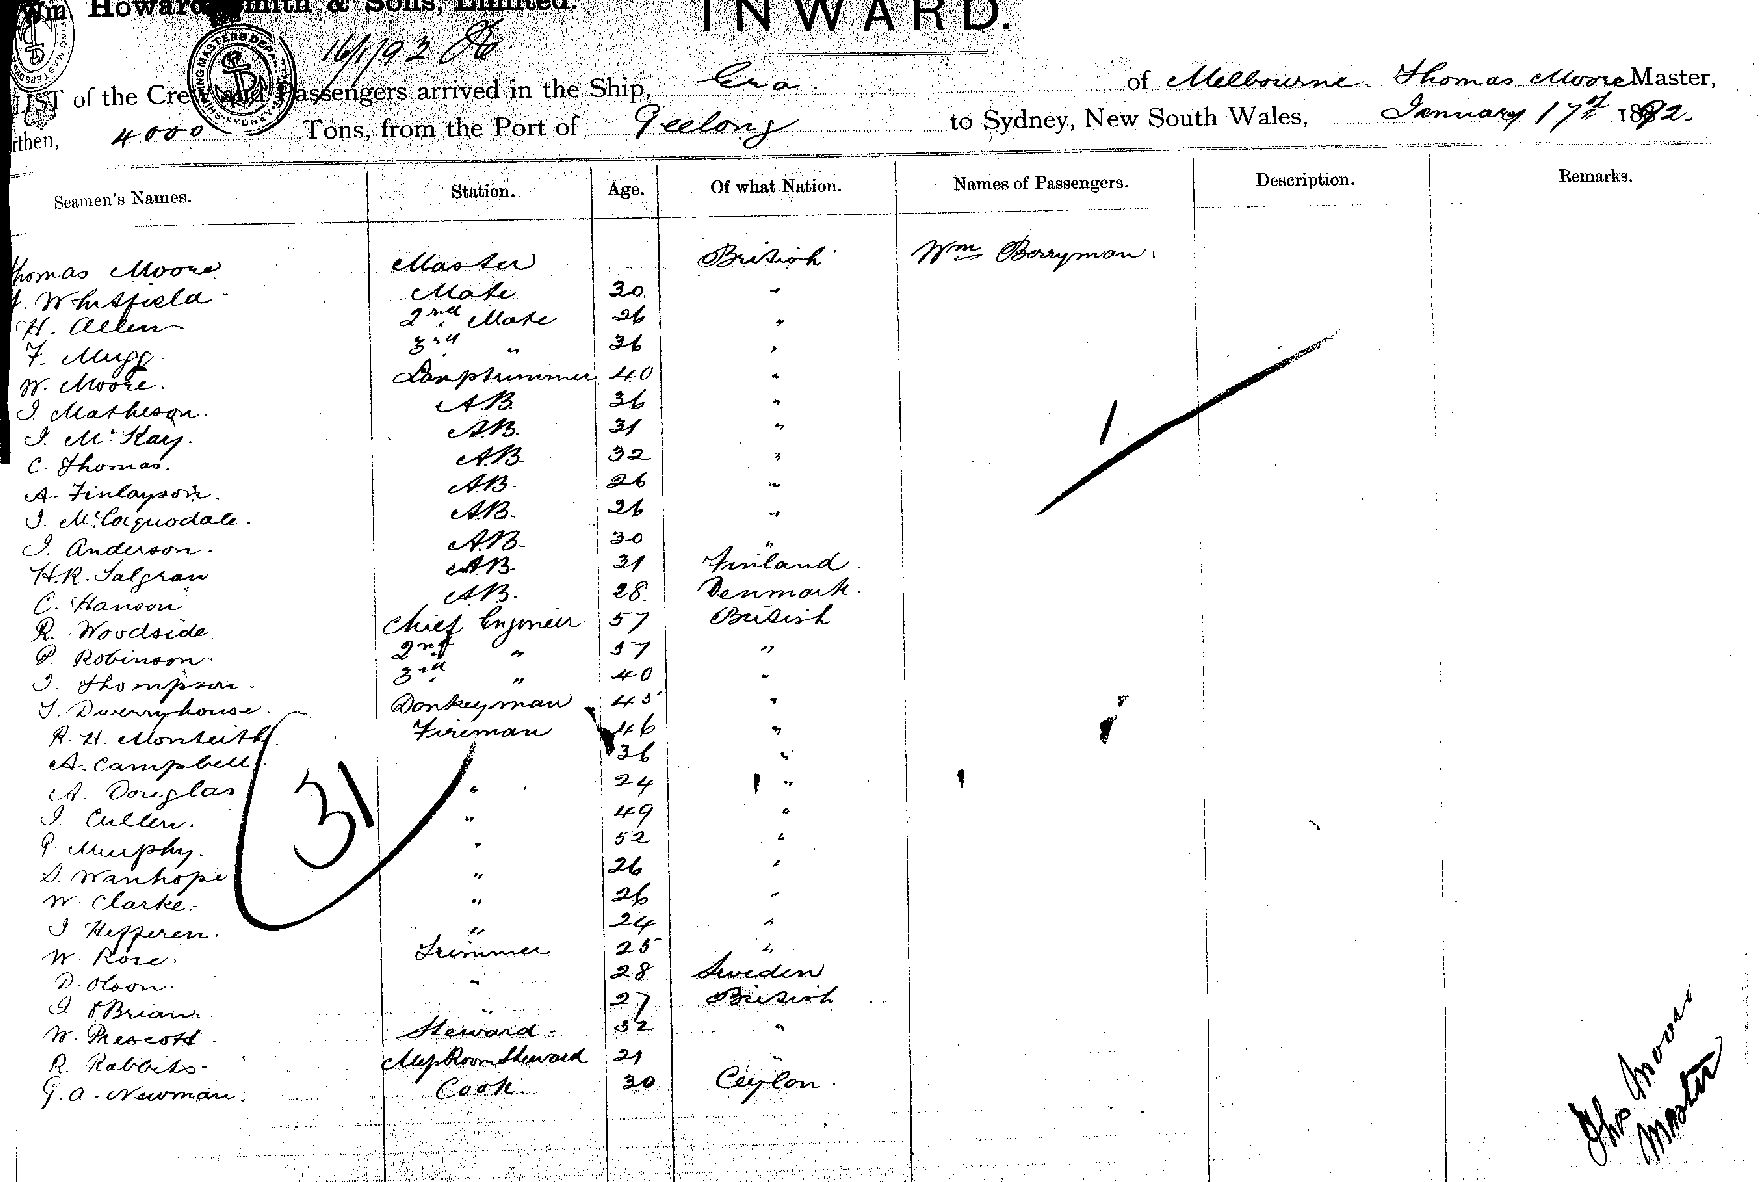 Wm Howard Smith & Sons, Limited.
INWARD.
16/1/92
LIST of the Crew and Passengers arrived in the Ship, Era of Melbourne. Thomas Moore Master,
rthen, 4000 Tons, from the Port of Geelong to Sydney, New South Wales, January 17th 1892.
Seamen's Names. Station. Age. Of what Nation. Names of Passengers. Description. Remarks.
Thomas Moore Master British Wm Berryman.
J. Whitfield Mate 30 "
H. Allen 2nd Mate 26 "
F. Mugg. 3rd " 36 "
W. Moore. Lamptrimmer 40 "
J. Matheson. A.B. 36 "
J. McKay. A.B. 31 "
C. Thomas. A.B. 32 "
A. Finlayson. A.B. 26 "
J. McCorquodale. A.B. 26 "
J. Anderson. A.B. 30 "
H.R. Salgran A.B. 31 Finland.
C. Hanson A.B. 28 Denmark.
R. Woodside Chief Engineer 57 British
P. Robinson. 2nd " 37 "
J. Thompson. 3rd " 40 "
T. Dwerryhouse. Donkeyman 45 "
R. H. Monteith Fireman 46 "
A. Campbell 36 "
A. Douglas " 24 "
J. Cullen. " 49 "
P. Murphy. " 52 "
D. Wanhope " 26 "
W. Clarke. " 26 "
J. Hefferen. " 24 "
W. Rose. Trimmer 25 "
D. Olson. " 28 Sweden
J. O'Brian. " 27 British
W. Prescott Steward. 32 "
R. Rabbits. Mess Room Steward 21 "
G. A. Newman. Cook 30 Ceylon.
1
31
Thos Moore
Master